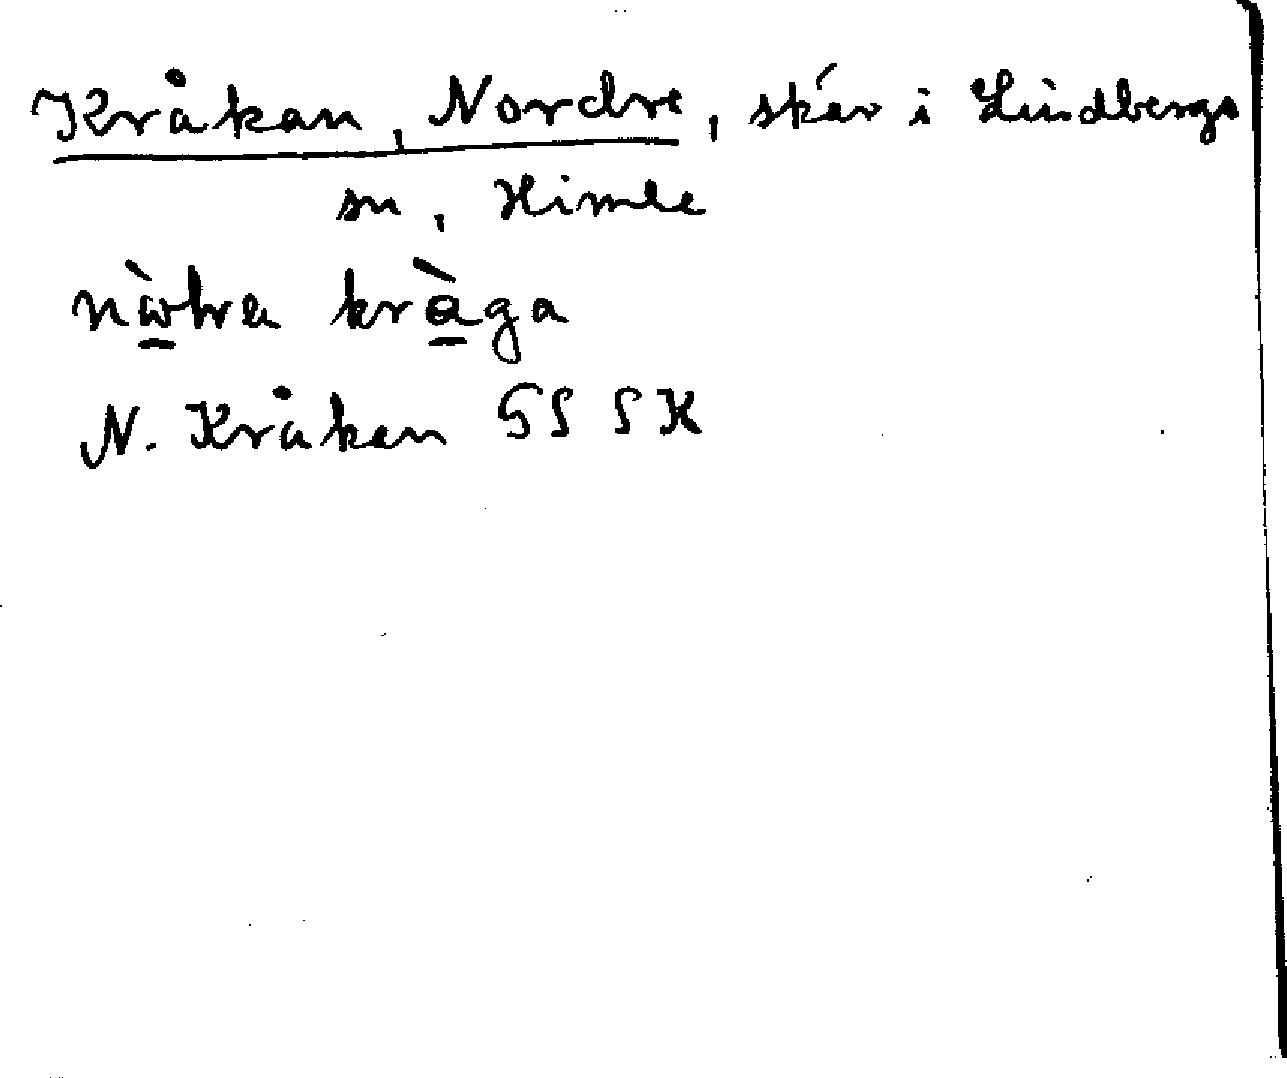 Kråkan, Nordre, skär i Lindbergs
sn, Himle
kràga
N. Kråkan GS SK